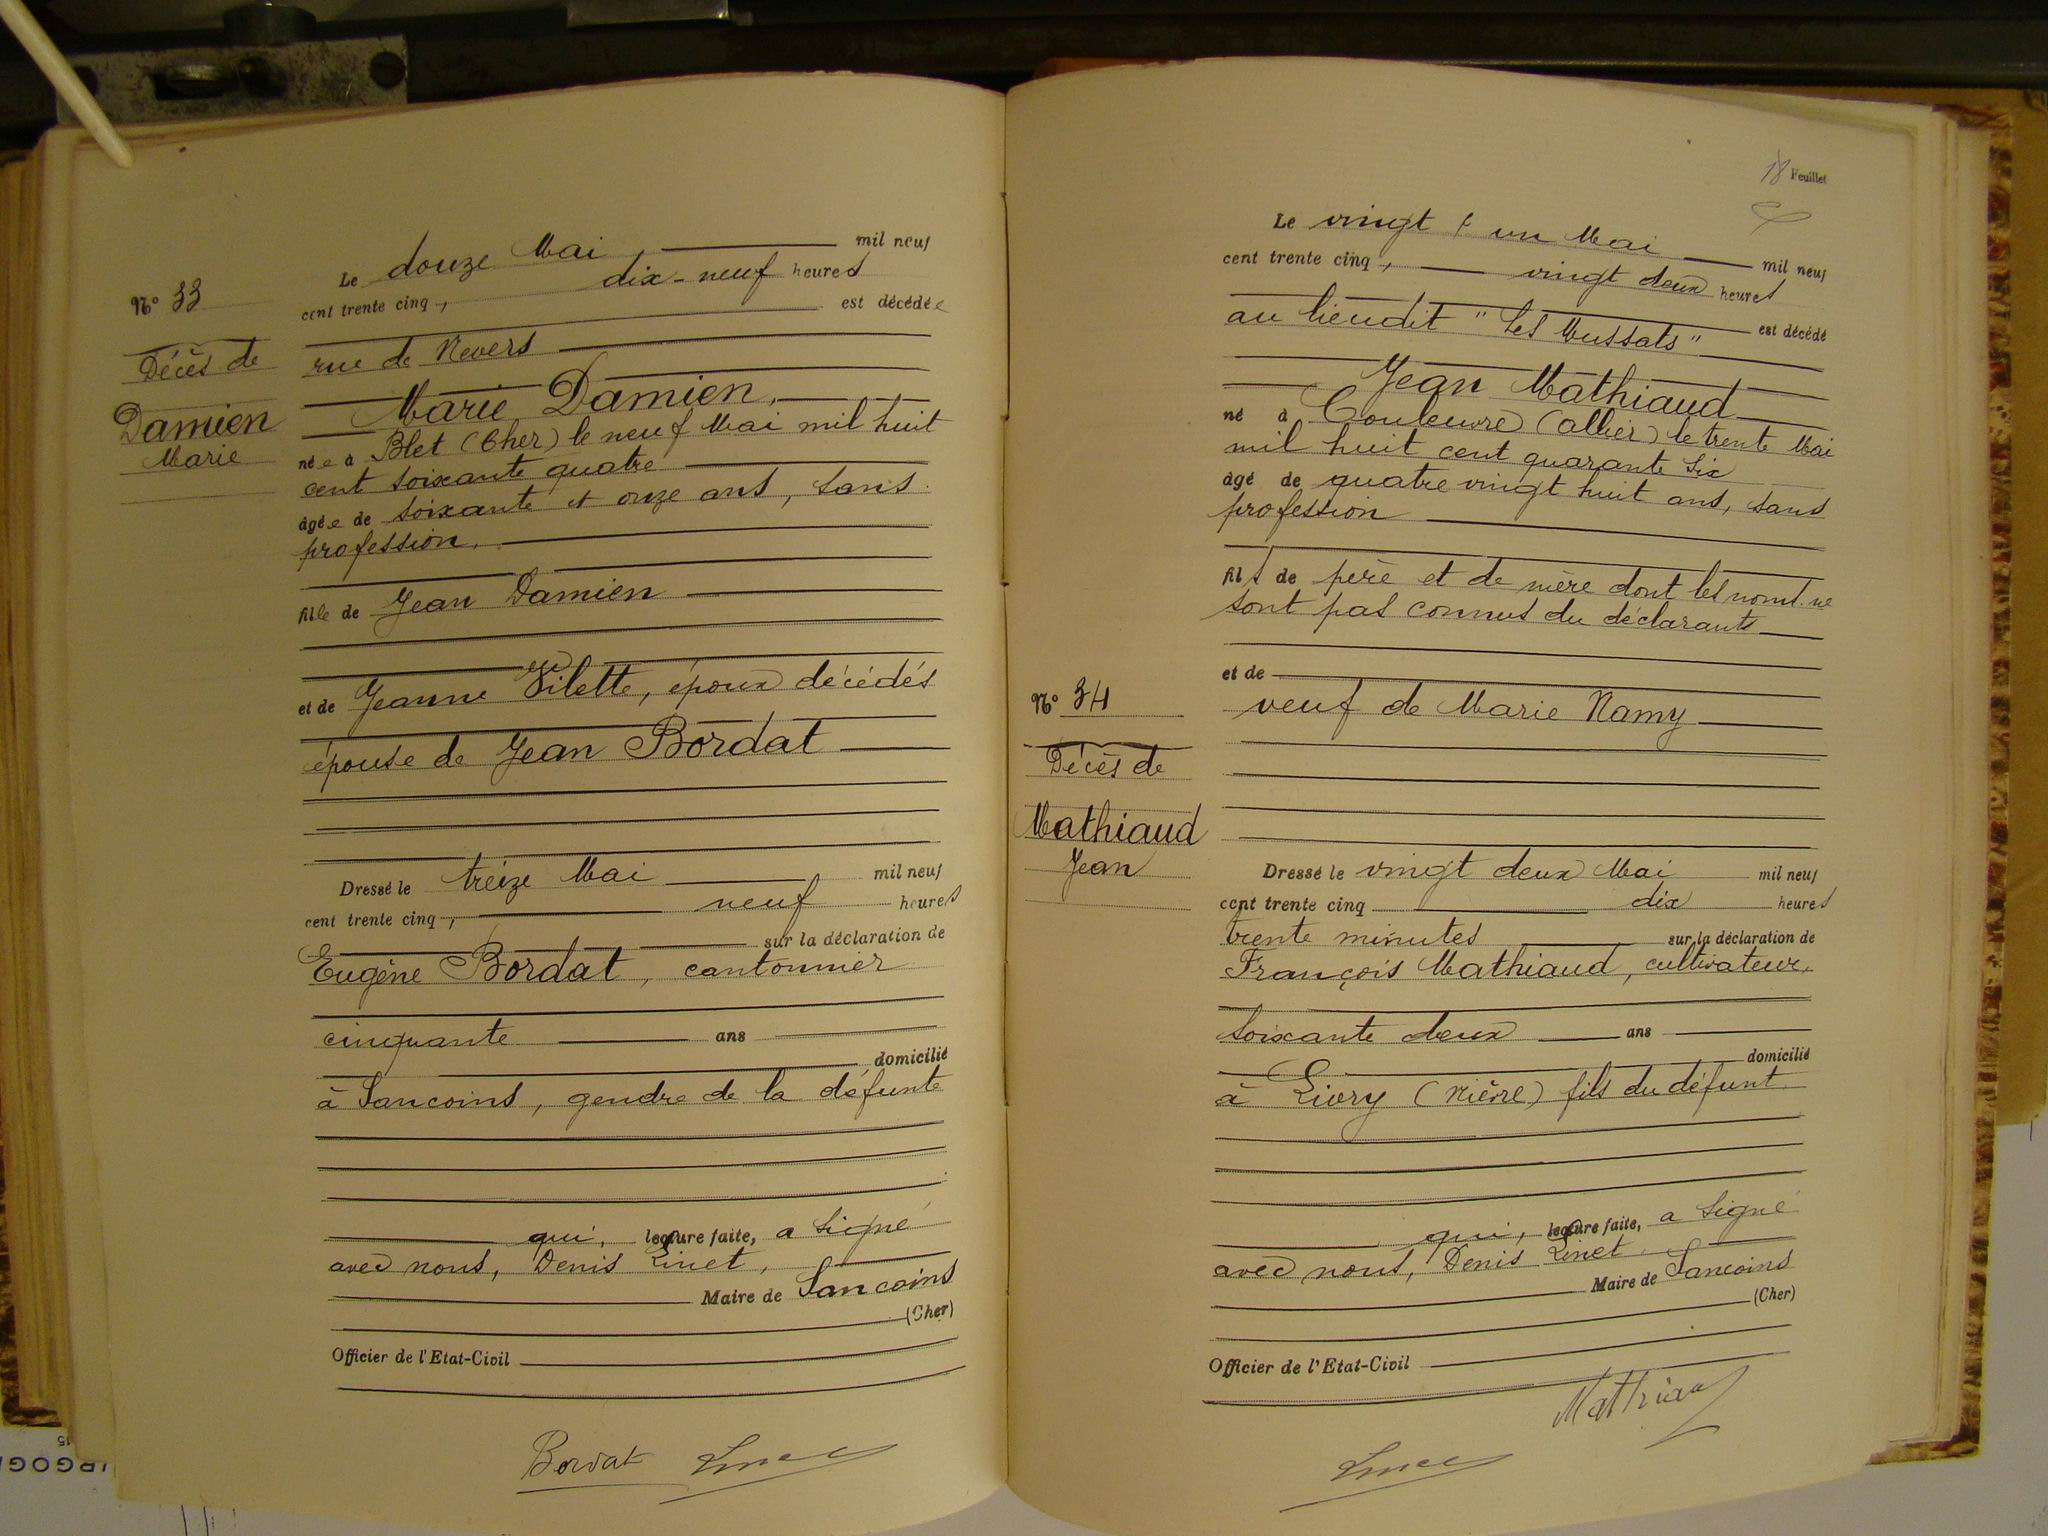 N° 33
Décès de
Damien
Marie
Le douze Mai mil neuf
cent trente cinq, dix-neuf heures
est décédée
rue de Nevers
Marie Damien,
née à Blet (Cher) le neuf Mai mil huit
cent soixante quatre
âgée de soixante et onze ans, sans
profession,
fille de Jean Damien
et de Jeanne Vilette, époux décédés
épouse de Jean Bordat
Dressé le treize Mai mil neuf
cent trente cinq, neuf heures
sur la déclaration de
Eugène Bordat, cantonnier
cinquante ans
domicilié
à Sancoins, gendre de la défunte
qui, lecture faite, a signé
avec nous, Denis Linet,
Maire de Sancoins
(Cher)
Officier de l'Etat-Civil
Bordat
18 Feuillet
N° 34
Décès de
Mathiaud
Jean
Le vingt & un Mai mil neuf
cent trente cinq, vingt deux heures
au lieudit "Les Mussats" est décédé
Jean Mathiaud
né à Couleuvre (allier) le trente Mai
mil huit cent quarante six
âgé de quatre vingt huit ans, sans
profession
fils de père et de mère dont les noms ne
sont pas connus du déclarants
et de
veuf de Marie Namy
Dressé le vingt deux Mai mil neuf
cent trente cinq dix heures
trente minutes sur la déclaration de
François Mathiaud, cultivateur,
soixante deux ans
domicilié
à Livry (Nièvre) fils du défunt
qui, lecture faite, a signé
avec nous, Denis Linet
Maire de Sancoins
(Cher)
Officier de l'Etat-Civil